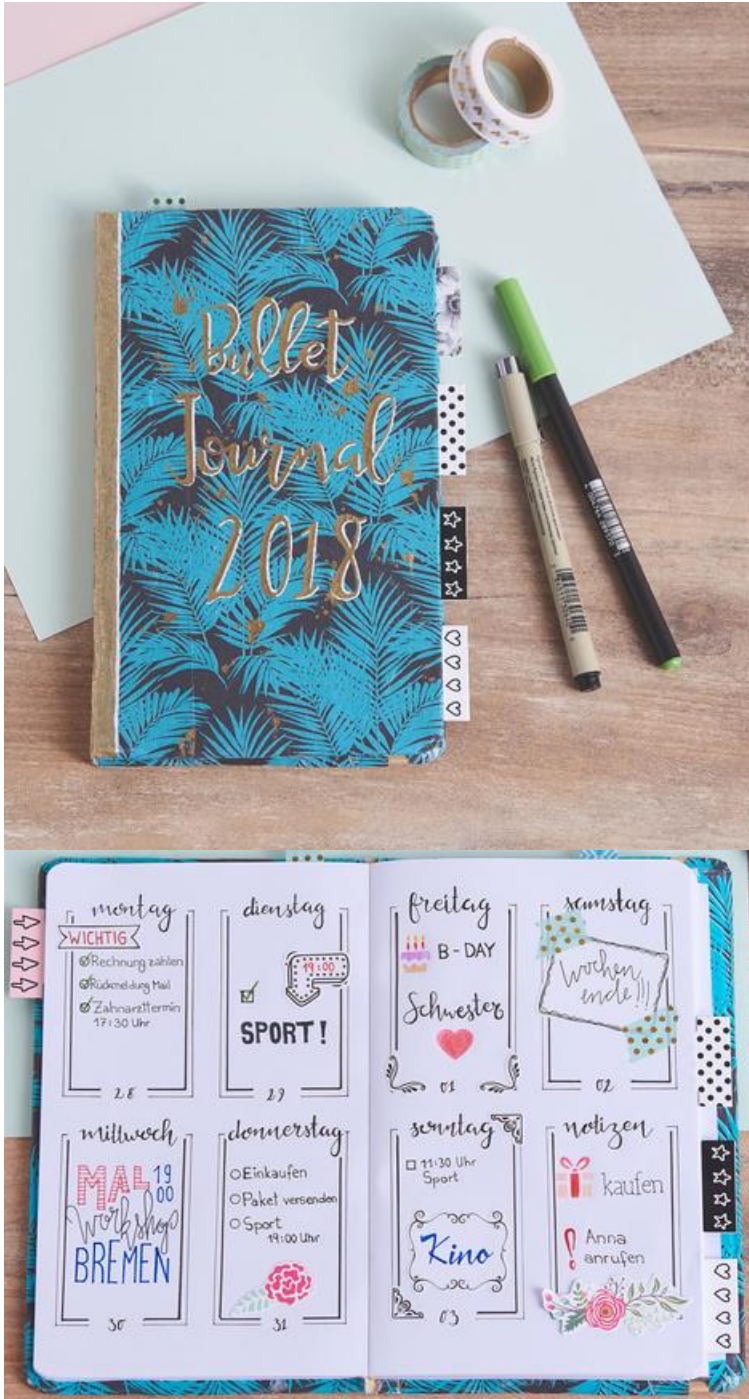 Bullet
Journal
2018
montag
WICHTIG
Rechnung zahlen
Rückmeldung Mail
Zahnarzttermin
17:30 Uhr
28
dienstag
19:00
SPORT!
29
mittwoch
MAL 19 00
Workshop
BREMEN
30
donnerstag
Einkaufen
Paket versenden
Sport
19:00 Uhr
31
freitag
B-DAY
Schwester
01
samstag
Wochen
ende!!!
02
sonntag
11:30 Uhr
Sport
Kino
03
notizen
kaufen
! Anna
anrufen